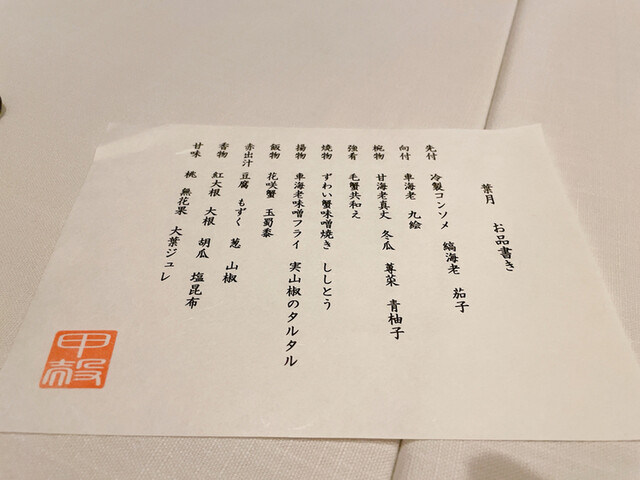 葉月 お品書き
先付 冷製コンソメ 縞海老 茄子
向付 車海老 九絵
椀物 甘海老真丈 冬瓜 蓴菜 青柚子
強肴 毛蟹共和え
焼物 ずわい蟹味噌焼き ししとう
揚物 車海老味噌フライ 実山椒のタルタル
飯物 花咲蟹 玉蜀黍
赤出汁 豆腐 もずく 葱 山椒
香物 紅大根 大根 胡瓜 塩昆布
甘味 桃 無花果 大葉ジュレ
甲殻